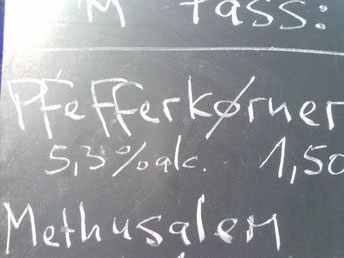 M Fass:
Pfefferkørner
5,3%alc. 1,50
Methusalem